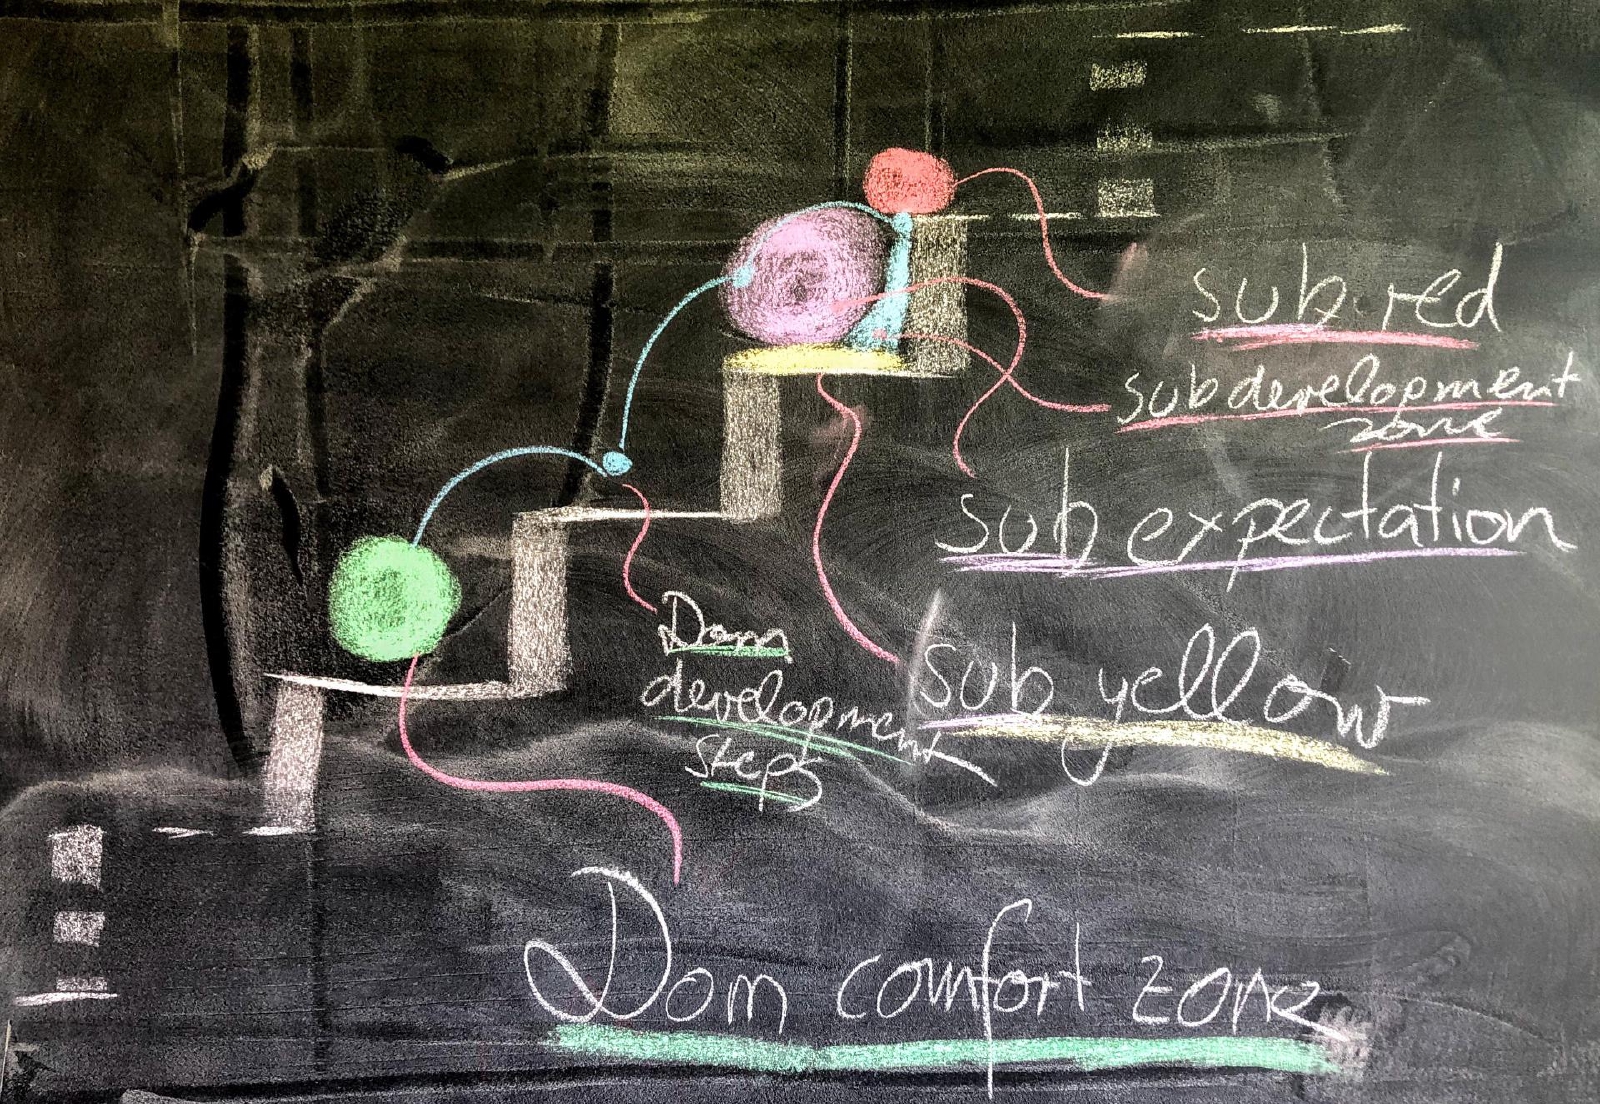 sub red
sub development
zone
sub expectation
Dom
development
steps
sub yellow
Dom comfort zone